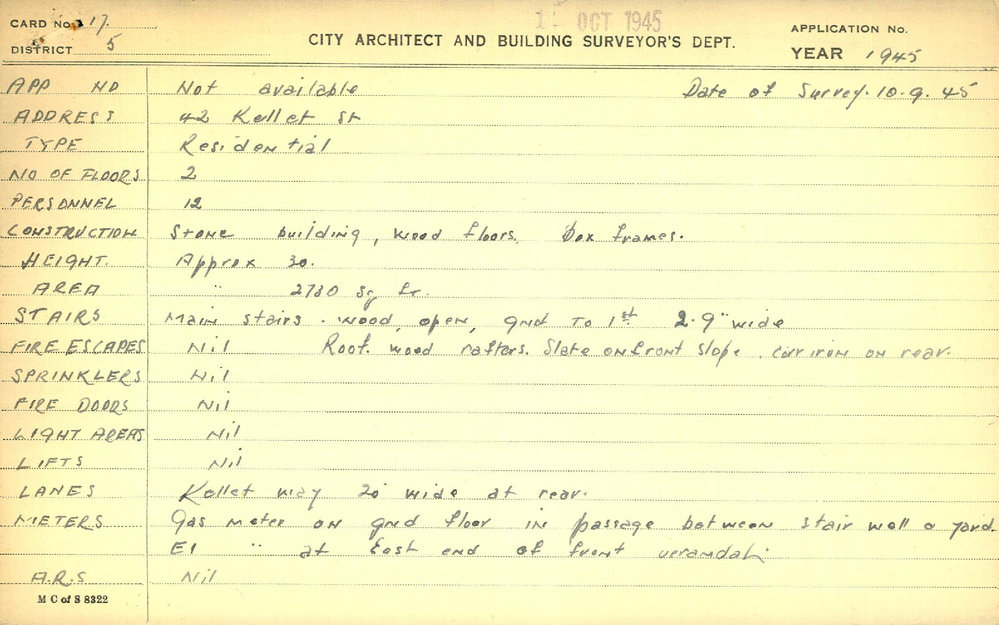 CARD No. 17.
OCT 1945
APPLICATION No.
DISTRICT 5
CITY ARCHITECT AND BUILDING SURVEYOR'S DEPT.
YEAR 1945
APP NO Not available Date of Survey. 10.9.45
ADDRESS 42 Kellet St
TYPE Residential
NO OF FLOORS 2
PERSONNEL 12
CONSTRUCTION Stone building, wood floors. box frames.
HEIGHT. Approx 30.
AREA " 2730 sq ft.
STAIRS Main stairs. wood, open, gnd to 1st 2.9" wide
FIRE ESCAPES Nil Roof. wood rafters. Slate on front slope. corr iron on rear.
SPRINKLERS Nil
FIRE DOORS Nil
LIGHT AREAS Nil
LIFTS Nil
LANES Kellet way 20' wide at rear.
METERS Gas meter on gnd floor in passage between stair well & yard.
El " at East end of front verandah
A.R.S Nil
M C of S 8322